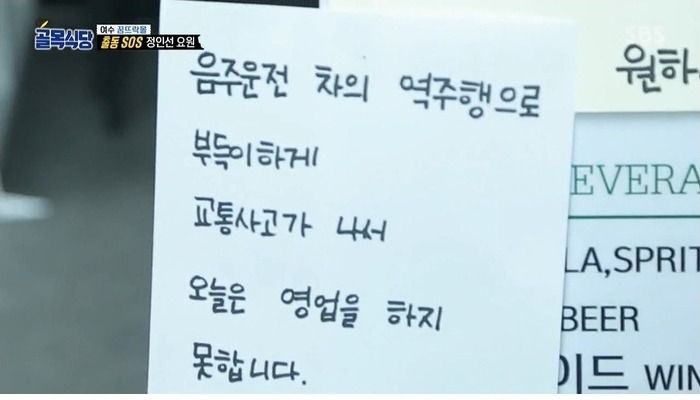 골목식당
여수 꿈뜨락몰
출동 SOS 정인선 요원
SBS
음주운전 차의 역주행으로
부득이하게
교통사고가 나서
오늘은 영업을 하지
못합니다.
원하
EVERA
LA,SPRIT
BEER
이드 WIN